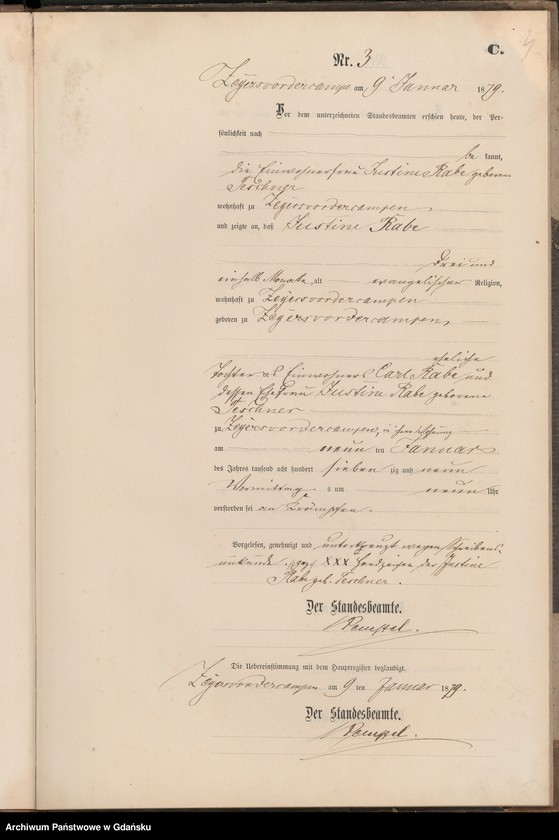 C.
Nr. 3
Zeyersvordercampen am 9 Januar 1879.
Vor dem unterzeichneten Standesbeamten erschien heute, der Per-
sönlichkeit nach
be kannt,
die Einwohnerfrau Justine Rabe geborene
Teschner
wohnhaft zu Zeyersvordercampen,
und zeigte an, daß Justine Rabe
drei und
einhalb Monate, alt evangelischer Religion,
wohnhaft zu Zeyersvordercampen
geboren zu Zeyersvordercampen,
eheliche
Tochter des Einwohners Carl Rabe und
dessen Ehefrau Justine Rabe geborene
Teschner
zu Zeyersvordercampen, in ihrer Wohnung
am neun ten Januar
des Jahres tausend acht hundert sieben zig und neun
Vormittags um neun Uhr
verstorben sei an Krämpfen.
Vorgelesen, genehmigt und unterkreuzt wegen Schreibens-
unkunde. (gez) XXX Handzeichen der Justine
Rabe geb. Teschner.
Der Standesbeamte.
Die Uebereinstimmung mit dem Hauptregister beglaubigt.
Zeyersvordercampen am 9 ten Januar 1879.
Der Standesbeamte.
Archiwum Państwowe w Gdańsku